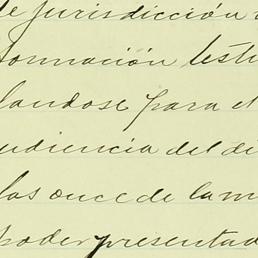 de jurisdicción
formación testi
landose para el
udiencia del di
las once de la m
poder presentad